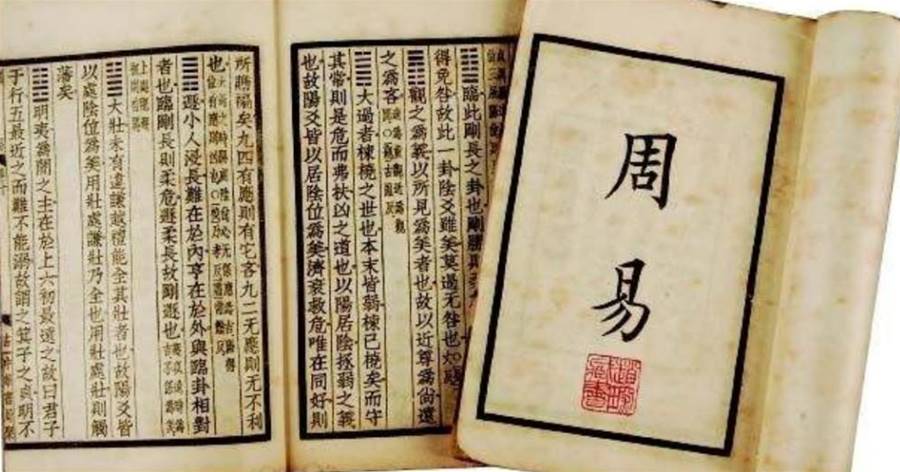 周易
䷒臨此剛長之卦也剛勝則
得免咎故此一卦陰爻雖美莫過无咎也
䷓觀之爲義以所見爲美者也故以近尊爲尚遠
之爲咎
䷛大過者棟橈之世也本末皆弱棟已橈矣而守
其常則是危而弗扶凶之道也以陽居陰拯弱之義
也故陽爻皆以居陰位爲美濟衰救危唯在同好則
所贍褊矣九四有應則有它吝九二无應則无不利
也
䷠遯小人浸長難在於內亨在於外與臨卦相對
者也臨剛長則柔危遯柔長故剛遯也
䷡大壯未有違謙越禮能全其壯者也故陽爻皆
以處陰位爲美用壯處謙壯乃全也用壯處壯則觸
藩矣
䷣明夷爲闇之主在於上六初最遠之故曰君子
于行五最近之而難不能溺故謂之箕子之貞明不